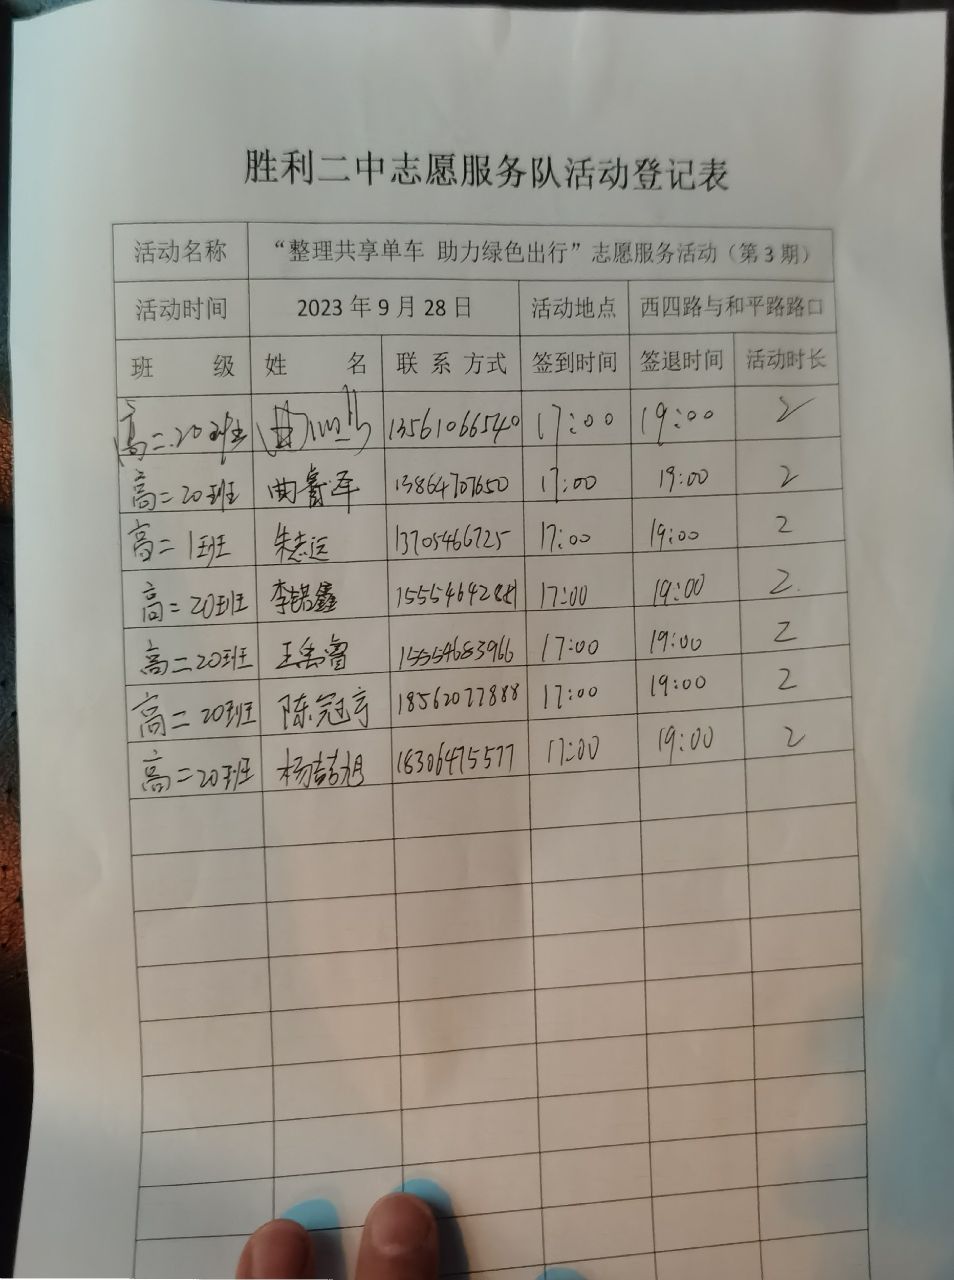 胜利二中志愿服务队活动登记表
活动名称 “整理共享单车 助力绿色出行”志愿服务活动（第3期）
活动时间 2023年9月28日 活动地点 西四路与和平路路口
班 级 姓 名 联 系 方式 签到时间 签退时间 活动时长
高二.20班 13561066540 17:00 19:00 2
高二20班 曲睿泽 13864707650 17:00 19:00 2
高二1班 朱志远 13705466725 17:00 19:00 2
高二20班 李铭鑫 17:00 19:00 2.
高二20班 王禹睿 15554683966 17:00 19:00 2
高二20班 陈冠亨 18562077888 17:00 19:00 2
高二20班 杨喆旭 18306475577 17:00 19:00 2